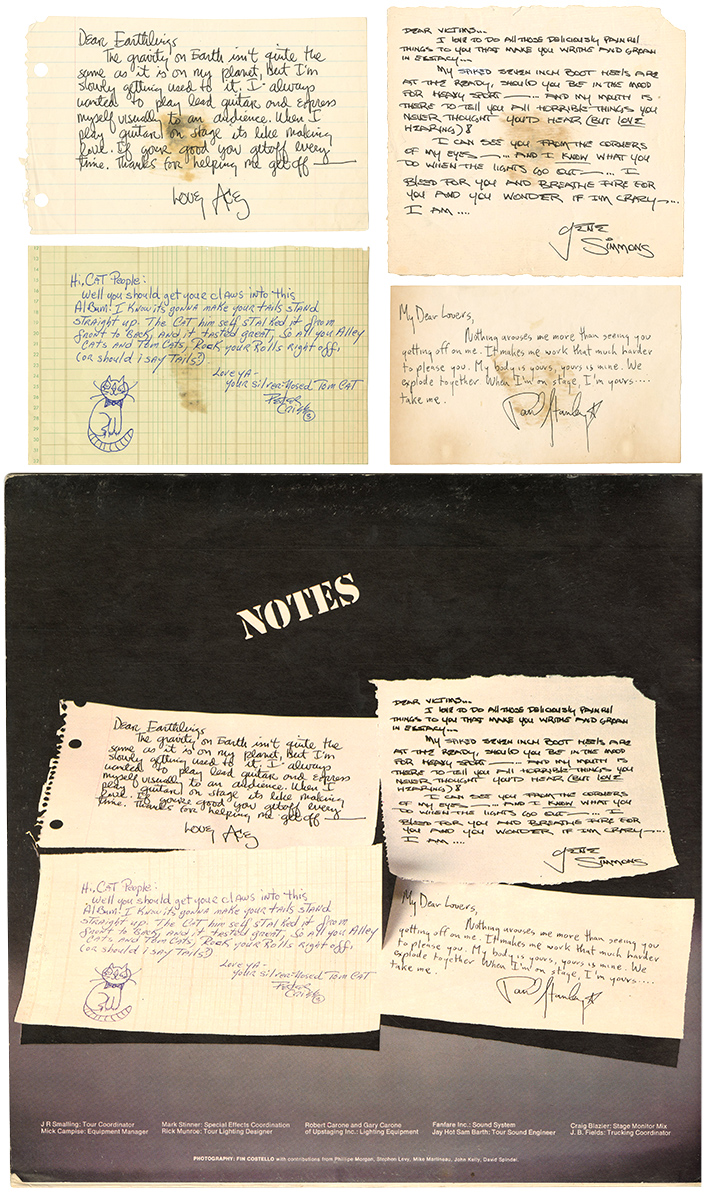 Dear Earthlings
The gravity on Earth isn't quite the
same as it is on my planet, but I'm
slowly getting used to it. I always
wanted to play lead guitar and express
myself visually to an audience. When I
play guitar on stage its like making
love. If youre good you getoff every
time. Thanks for helping me get off —
Love, Ace
DEAR VICTIMS...
I LOVE TO DO ALL THOSE DELICIOUSLY PAINFUL
THINGS TO YOU THAT MAKE YOU WRITHE AND GROAN
IN ECSTACY...
MY SPIKED SEVEN INCH BOOT HEELS ARE
AT THE READY, SHOULD YOU BE IN THE MOOD
FOR HEAVY SPORT —... AND MY MOUTH IS
THERE TO TELL YOU ALL HORRIBLE THINGS YOU
NEVER THOUGHT YOU'D HEAR (BUT LOVE
HEARING)!
I CAN SEE YOU FROM THE CORNERS
OF MY EYES —... AND I KNOW WHAT YOU
DO WHEN THE LIGHTS GO OUT —... I
BLEED FOR YOU AND BREATHE FIRE FOR
YOU AND YOU WONDER IF I'M CRAZY —...
I AM ....
GENE
SIMMONS
Hi, CAT People:
Well you should get your claws into this
AlBum! I Know its gonna make your tails STAND
STRAIGHT up. The CAT him self STALKed it from
front to Back, and it tasted great, So all you Alley
CATS and Tom Cats, Rock your Rolls Right off,
(or should i say Tails?)
Love ya -
your silver-nosed Tom CAT
Peter
Criss
My Dear Lovers,
Nothing arouses me more than seeing you
getting off on me. It makes me work that much harder
to please you. My body is yours, yours is mine. We
explode together. When I'm on stage, I'm yours....
take me.
Paul Stanley
NOTES
Dear Earthlings
The gravity on Earth isn't quite the
same as it is on my planet, but I'm
slowly getting used to it. I always
wanted to play lead guitar and express
myself visually to an audience. When I
play guitar on stage its like making
love. If youre good you getoff every
time. Thanks for helping me get off —
Love, Ace
DEAR VICTIMS...
I LOVE TO DO ALL THOSE DELICIOUSLY PAINFUL
THINGS TO YOU THAT MAKE YOU WRITHE AND GROAN
IN ECSTACY...
MY SPIKED SEVEN INCH BOOT HEELS ARE
AT THE READY, SHOULD YOU BE IN THE MOOD
FOR HEAVY SPORT —... AND MY MOUTH IS
THERE TO TELL YOU ALL HORRIBLE THINGS YOU
NEVER THOUGHT YOU'D HEAR (BUT LOVE
HEARING)!
I CAN SEE YOU FROM THE CORNERS
OF MY EYES —... AND I KNOW WHAT YOU
DO WHEN THE LIGHTS GO OUT —... I
BLEED FOR YOU AND BREATHE FIRE FOR
YOU AND YOU WONDER IF I'M CRAZY —...
I AM ....
GENE
SIMMONS
Hi, CAT People:
Well you should get your claws into this
AlBum! I Know its gonna make your tails STAND
STRAIGHT up. The CAT him self STALKed it from
front to Back, and it tasted great, So all you Alley
CATS and Tom Cats, Rock your Rolls Right off,
(or should i say Tails?)
Love ya -
your silver-nosed Tom CAT
Peter
Criss
My Dear Lovers,
Nothing arouses me more than seeing you
getting off on me. It makes me work that much harder
to please you. My body is yours, yours is mine. We
explode together. When I'm on stage, I'm yours....
take me.
Paul Stanley
J R Smalling: Tour Coordinator
Mick Campise: Equipment Manager
Mark Stinner: Special Effects Coordination
Rick Munroe: Tour Lighting Designer
Robert Carone and Gary Carone
of Upstaging Inc.: Lighting Equipment
Fanfare Inc.: Sound System
Jay Hot Sam Barth: Tour Sound Engineer
Craig Blazier: Stage Monitor Mix
J. B. Fields: Trucking Coordinator
PHOTOGRAPHY: FIN COSTELLO with contributions from Phillipe Morgan, Stephen Levy, Mike Martineau, John Kelly, David Spindel.